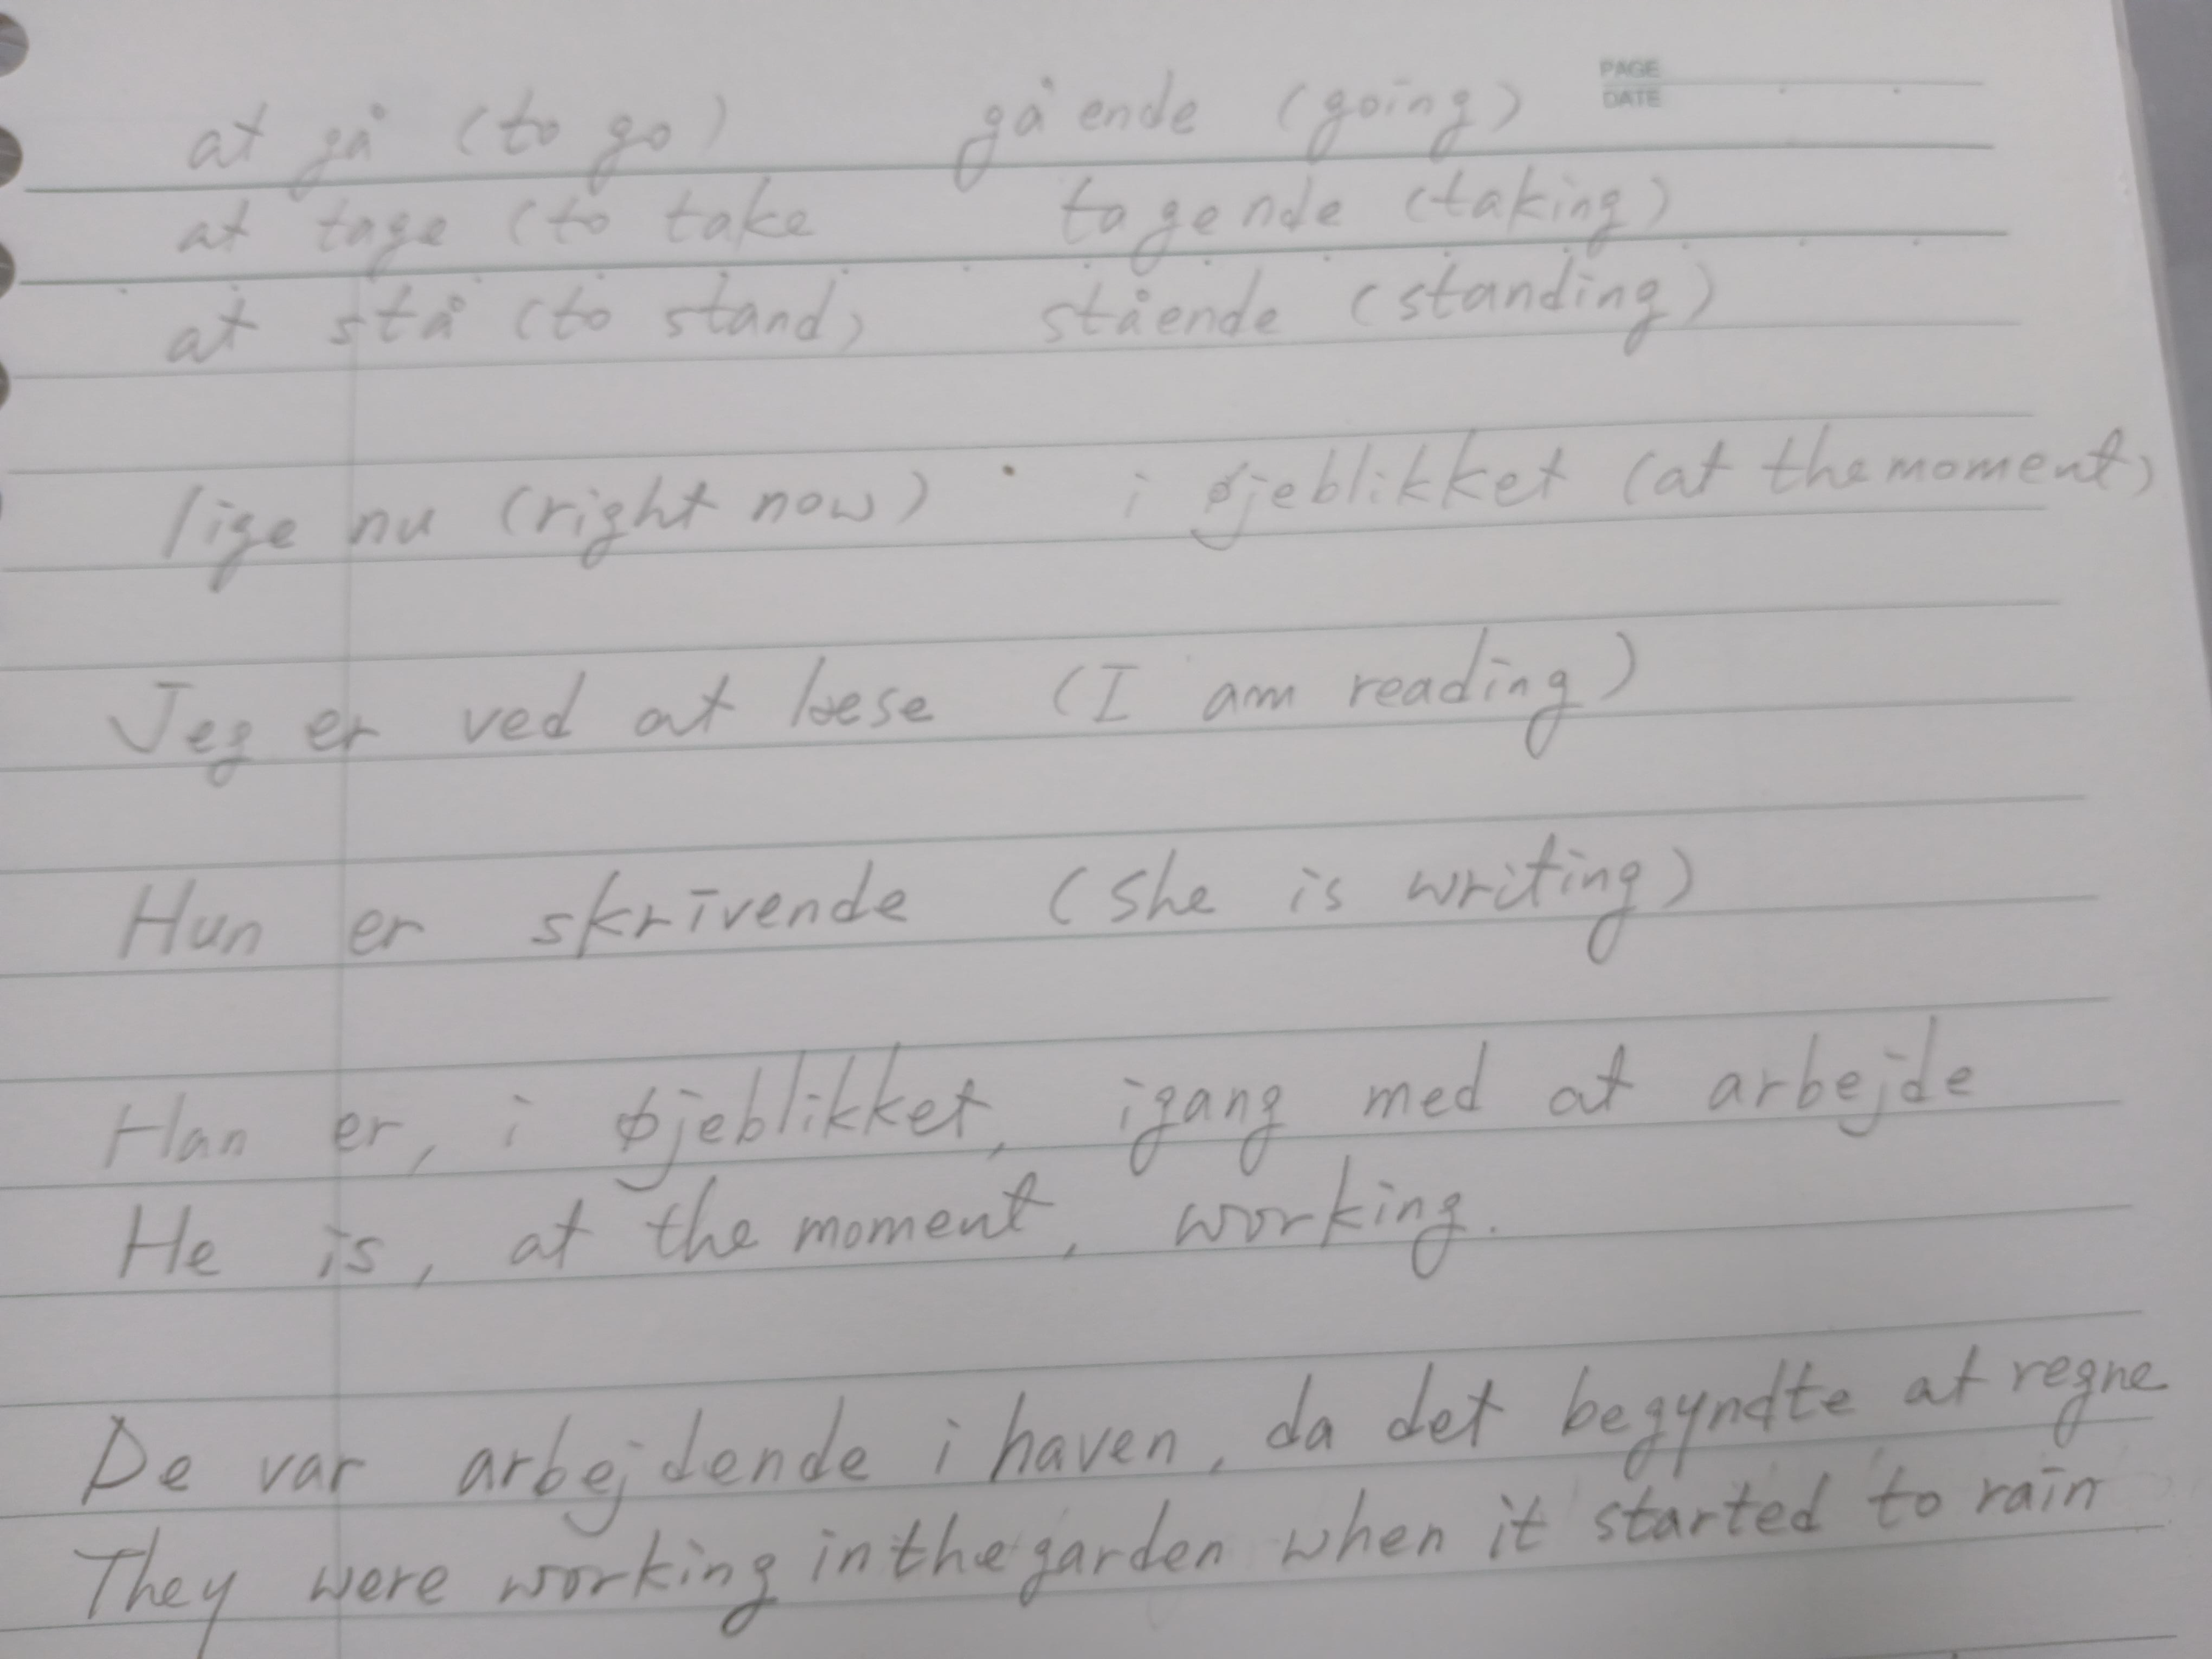 PAGE
DATE
at gå (to go) gående (going)
at tage (to take tagende (taking)
at stå (to stand) stående (standing)
lige nu (right now) i øjeblikket (at the moment)
Jeg er ved at læse (I am reading)
Hun er skrivende (She is writing)
Han er, i øjeblikket, igang med at arbejde
He is, at the moment, working.
De var arbejdende i haven, da det begyndte at regne
They were working in the garden when it started to rain